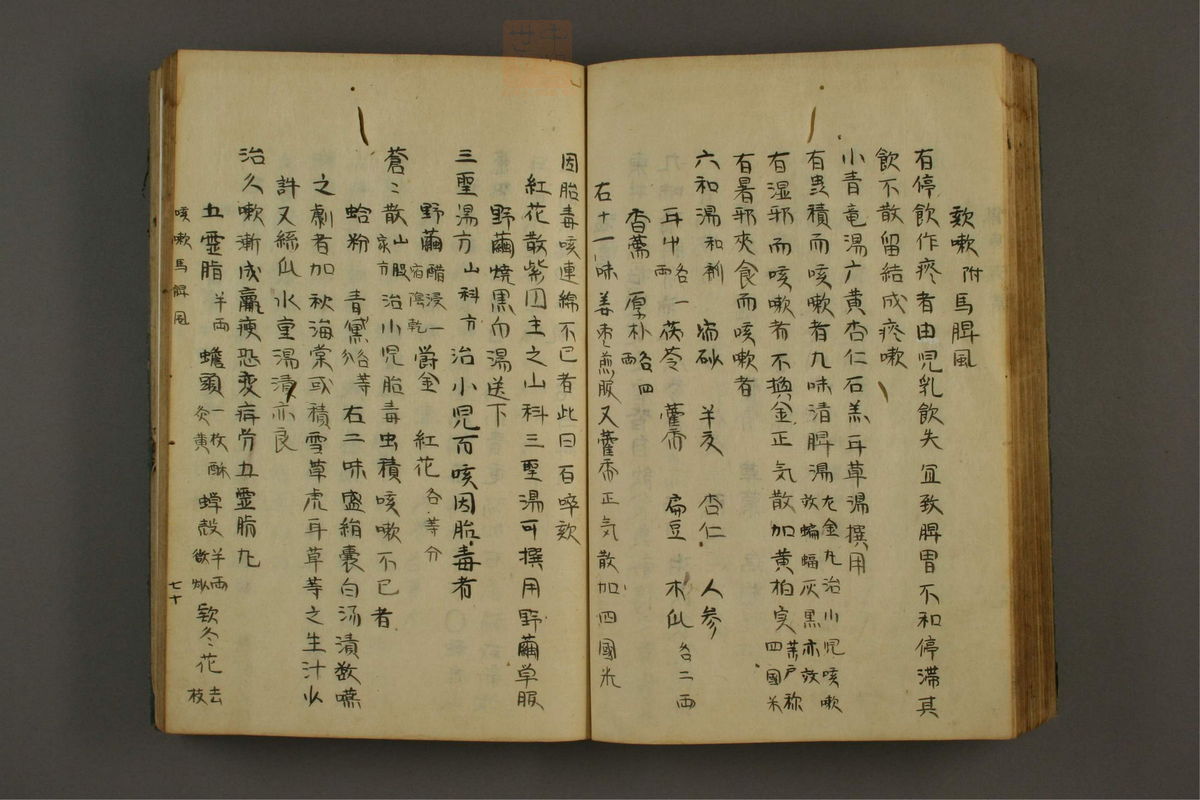 欬嗽 附 馬脾風
有停飲作痰者由児乳飲失宜致脾胃不和停滞其
飲不散留結成痰嗽
小青竜湯广黄杏仁石羔耳草湯撰用
有虫積而咳嗽者九味清脾湯 龙金九治小児咳嗽 效蝙蝠灰黒亦效
有湿邪而咳嗽者不換金正気散加黄柏実 四國米
有暑邪夾食而咳嗽者
六和湯 和剤 宿砂 半夏 杏仁 人参
耳中 各一両 茯苓 藿香 扁豆 木瓜 各二両
香薷 厚朴 各四両
右十一味姜枣煎服又藿香正気散加四國米
因胎毒咳連綿不已者此曰百啐欬
紅花散紫円主之山科三聖湯可撰用野繭草服
野繭焼黒白湯送下
三聖湯方 山科方 治小児百咳因胎毒者
野繭 醋浸一宿陰乾 欝金 紅花 各等分
蒼々散 山服家方 治小児胎毒虫積咳嗽不已者
蛤粉 青黛 各等分 右二味盛絹囊白汤漬数嚥
之劇者加秋海棠或積雪草虎耳草等之生汁少
許又絲瓜水童湯漬亦良
治久嗽漸成羸痩恐変疳労五霊脂丸
五霊脂 半両 蟾頭 一枚酥炙黄 蟬殻 半両微炒 欵冬花 去枝
咳嗽馬脾風
七十